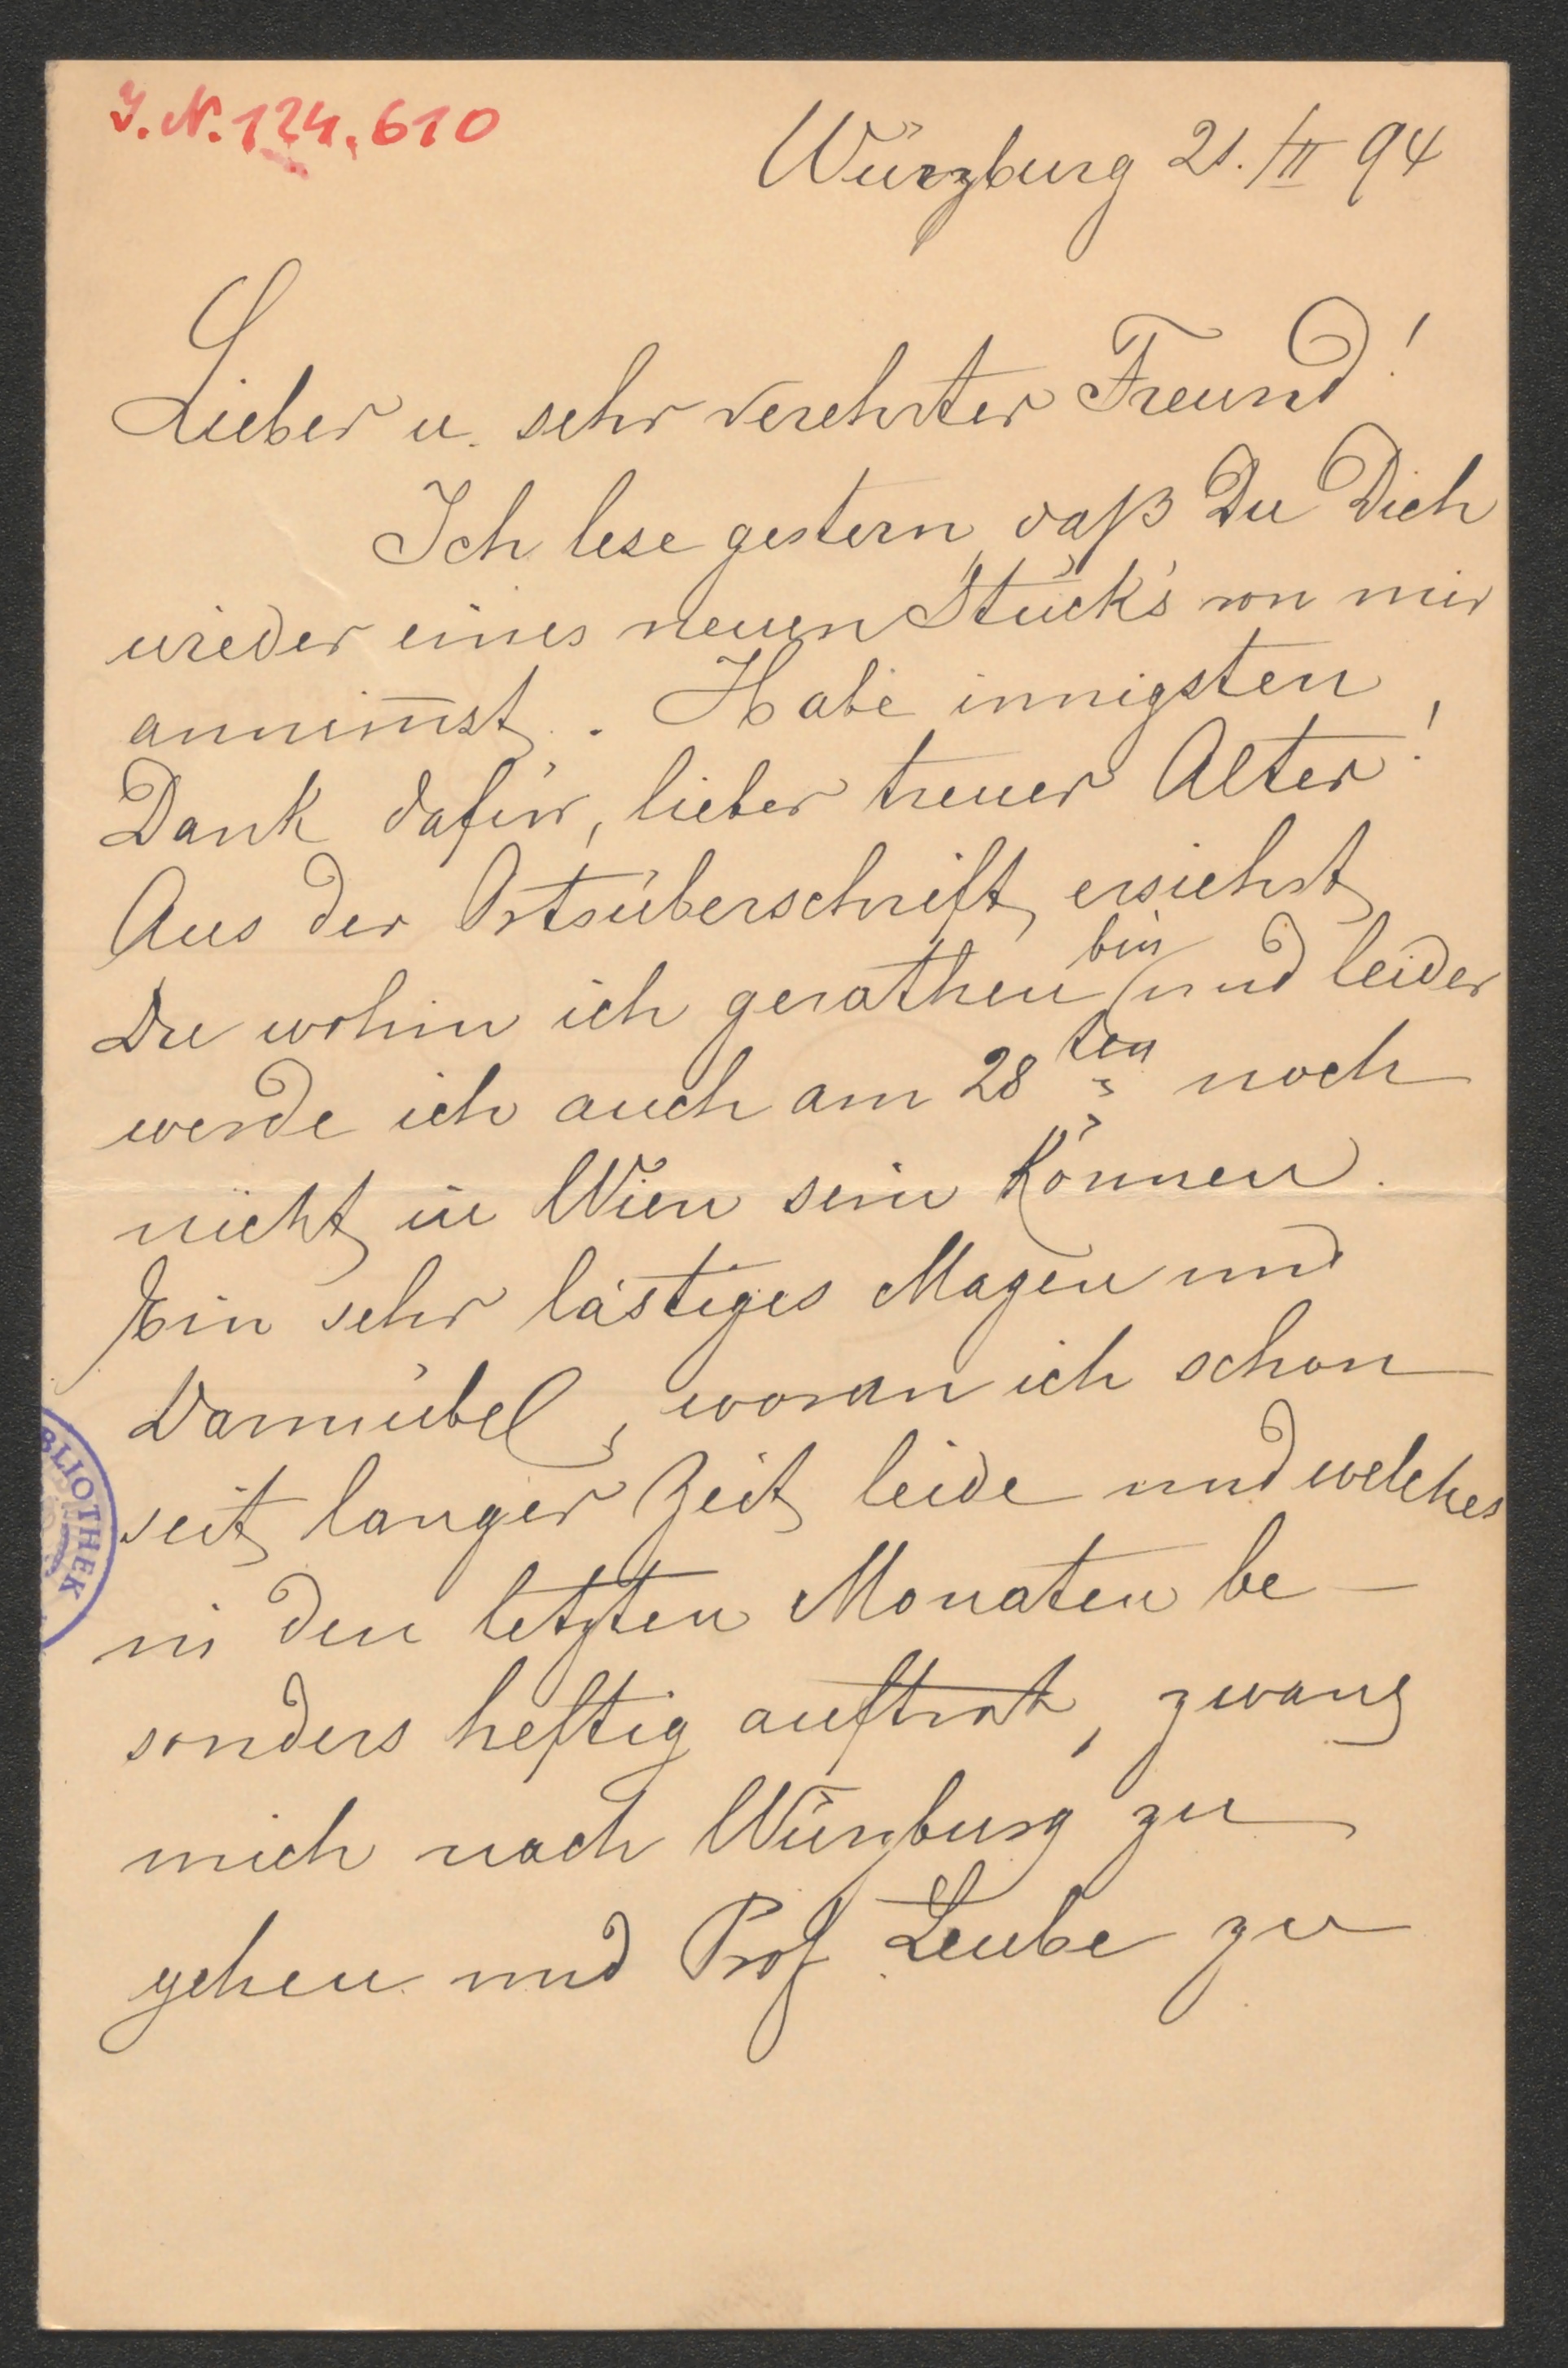 J.N. 124.610
Würzburg 21./II 94
Lieber u. sehr verehrter Freund!
Ich lese gestern, daß Du Dich
wieder eines neuen Stück's von mir
annim̅st. Habe innigsten
Dank dafür, lieber treuer Alter!
Aus der Ortsüberschrift ersiehst
Du wohin ich gerathen bin und leider
werde ich auch am 28ten noch
nicht in Wien sein können.
Ein sehr lästiges Magen und
Darmübel, woran ich schon
seit langer Zeit leide und welches
in den letzten Monaten be-
sonders heftig auftrat, zwang
mich nach Würzburg zu
gehen und Prof Leube zu
BLIOTHEK